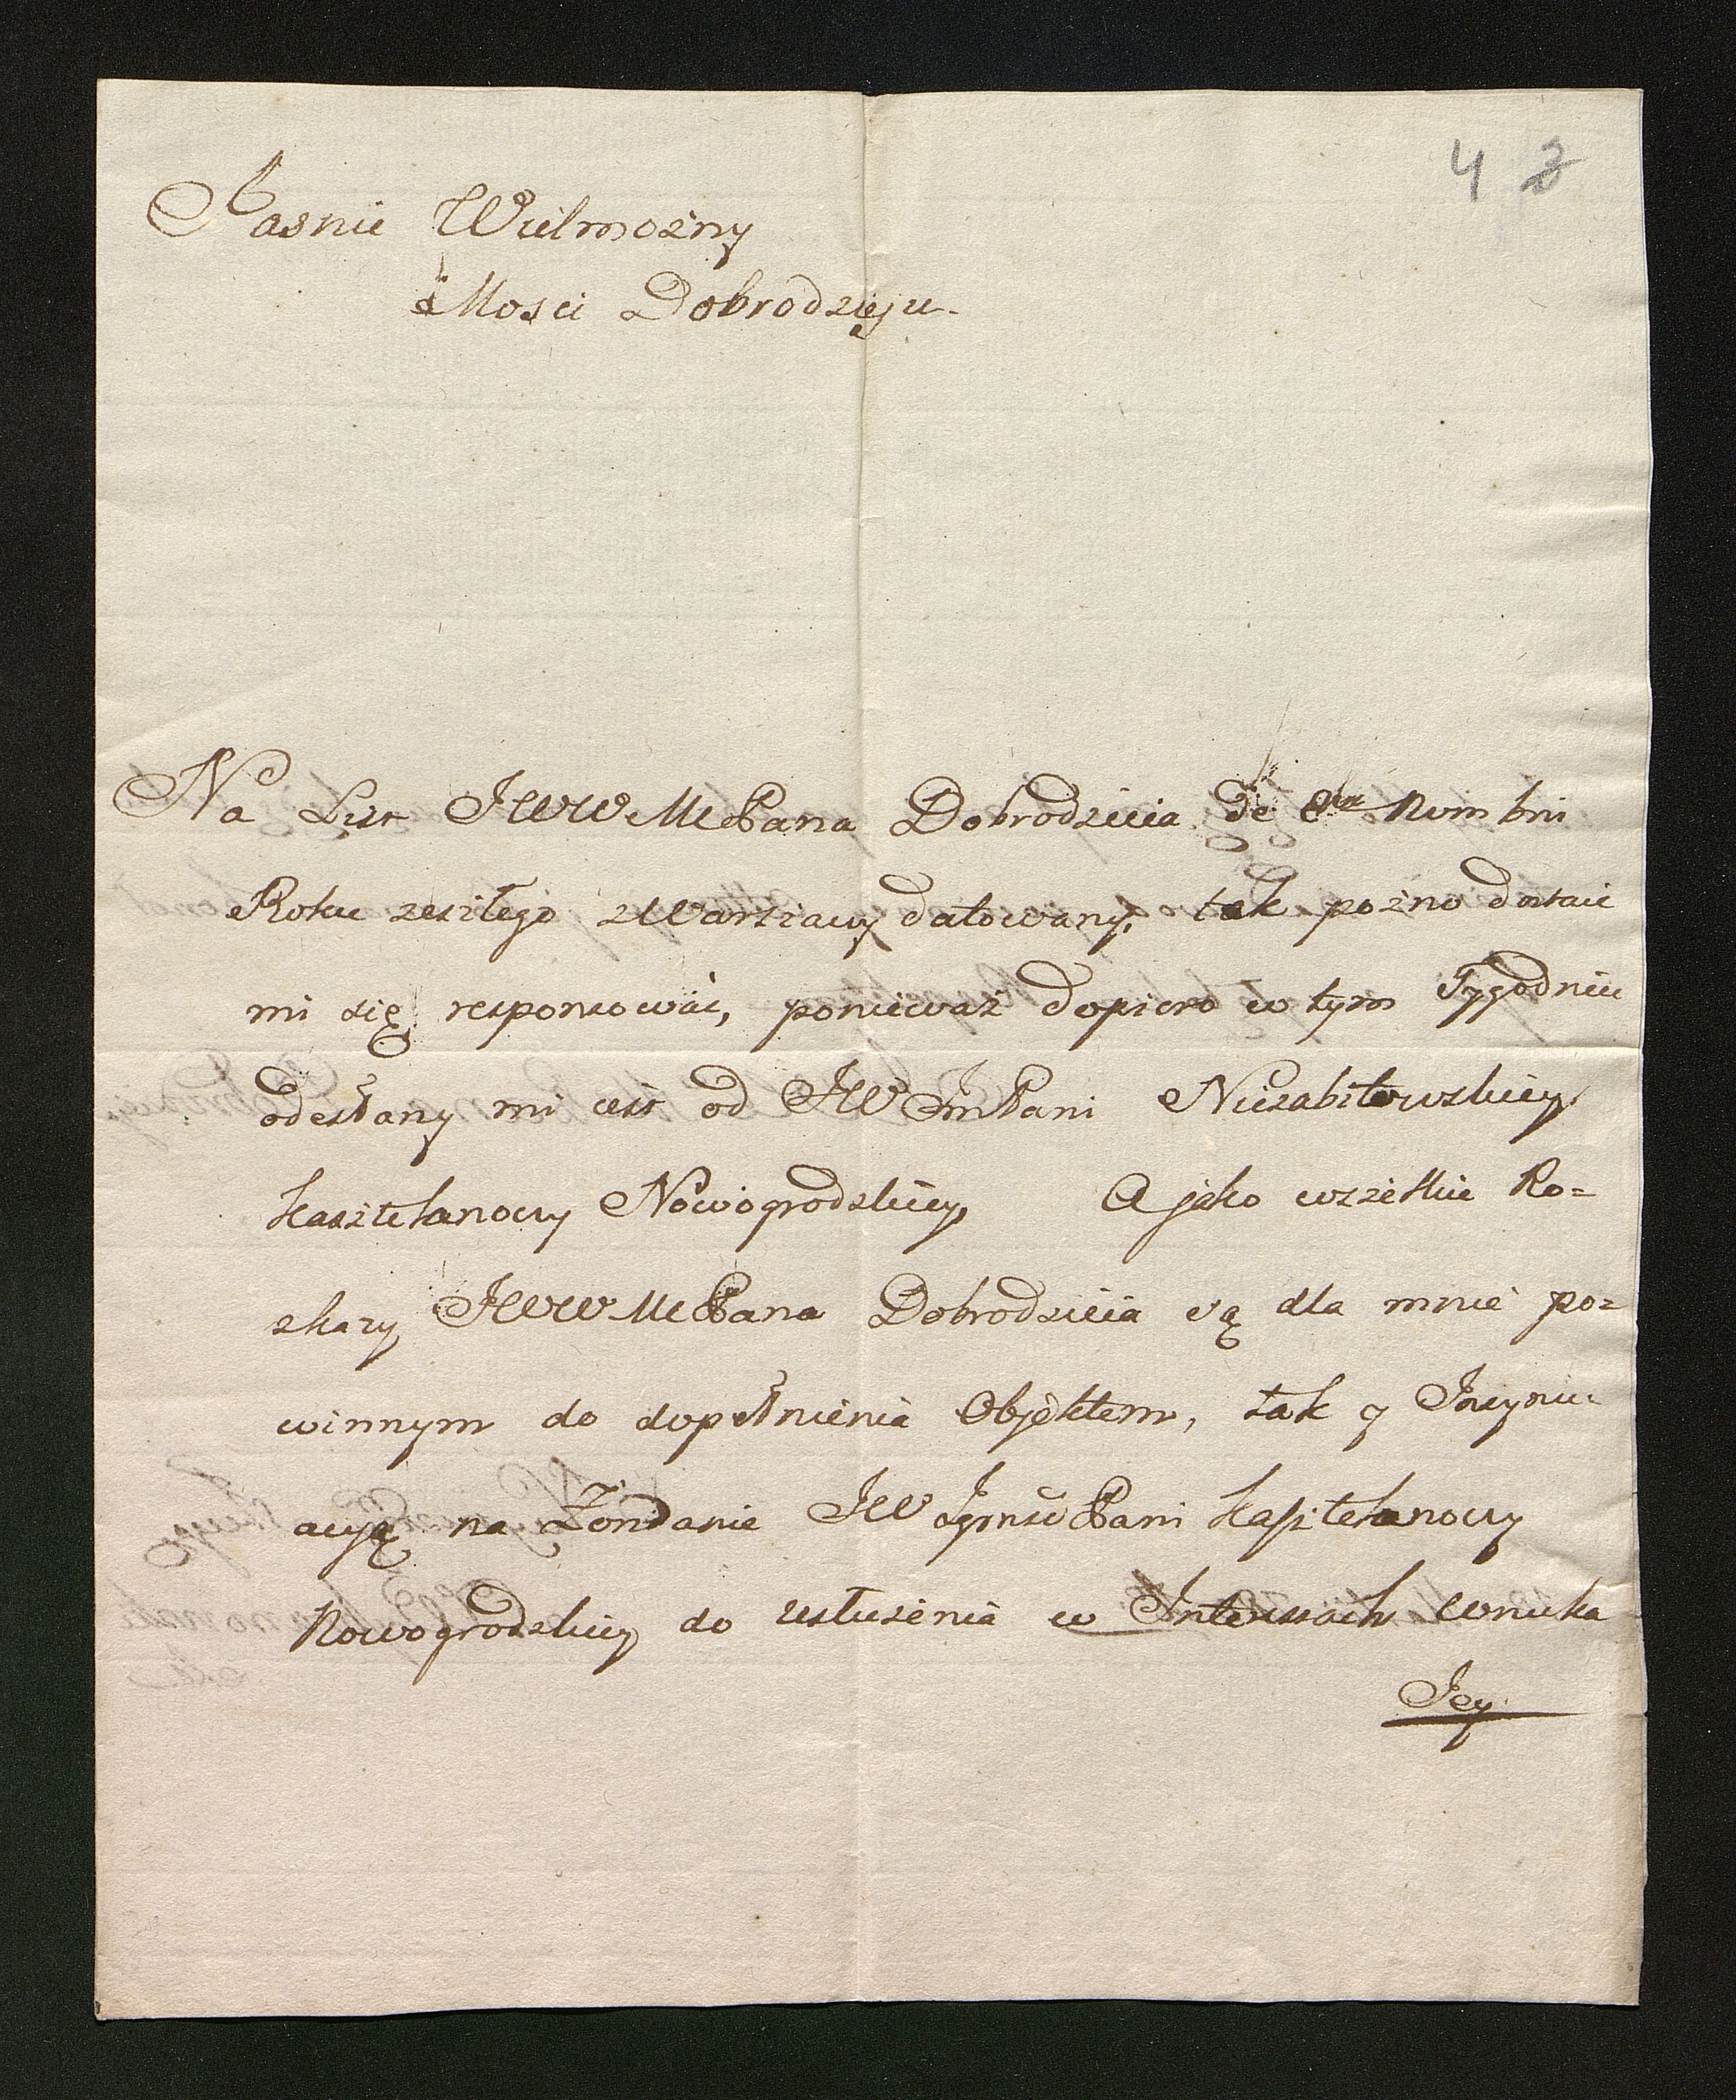 4 2
Jasnie Wielmozny
Mosci Dobrodzieju.
Na List JWW MCPana Dobrodzieia de 8va Nvmbri
Roku zeszłego z Warszawy datowany, tak pozno dostaie
mi się responsować, ponieważ dopiero w tym Tygodniu
odesłany mi iest od JW JmPani Niezabitowskiey
Kasztelanowy Nowogrodzkiey, A jako wszelkie Ro=
skazy JWW MCPana Dobrodzieia są dla mnie po=
winnym do dopełnienia Objektem, tak y Insynu=
acyą na Żondanie JW Pani Kasztelanowy
Nowogrodzkiey do usłużenia w Interessach wnuka
Jey